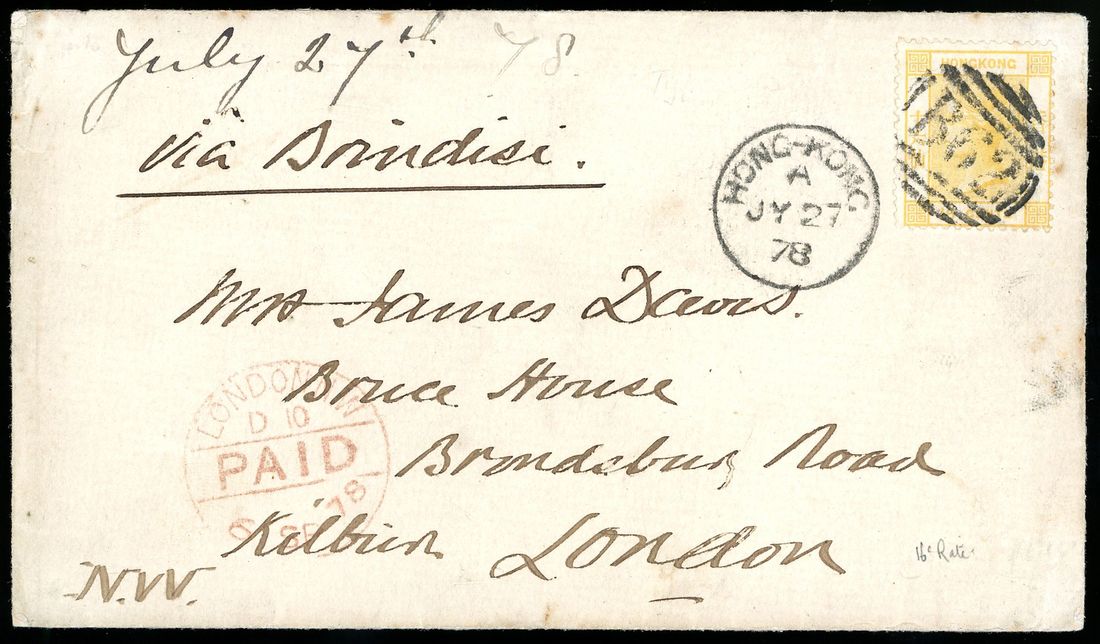 July 27th 78
via Brindisi.
HONGKONG
B62
HONG-KONG
A
JY 27
78
Mrs James Davis.
Bruce House
Brondsbury Road
Kilburn London
N.W.
LONDON
D 10
PAID
6 SE 78
16c Rate